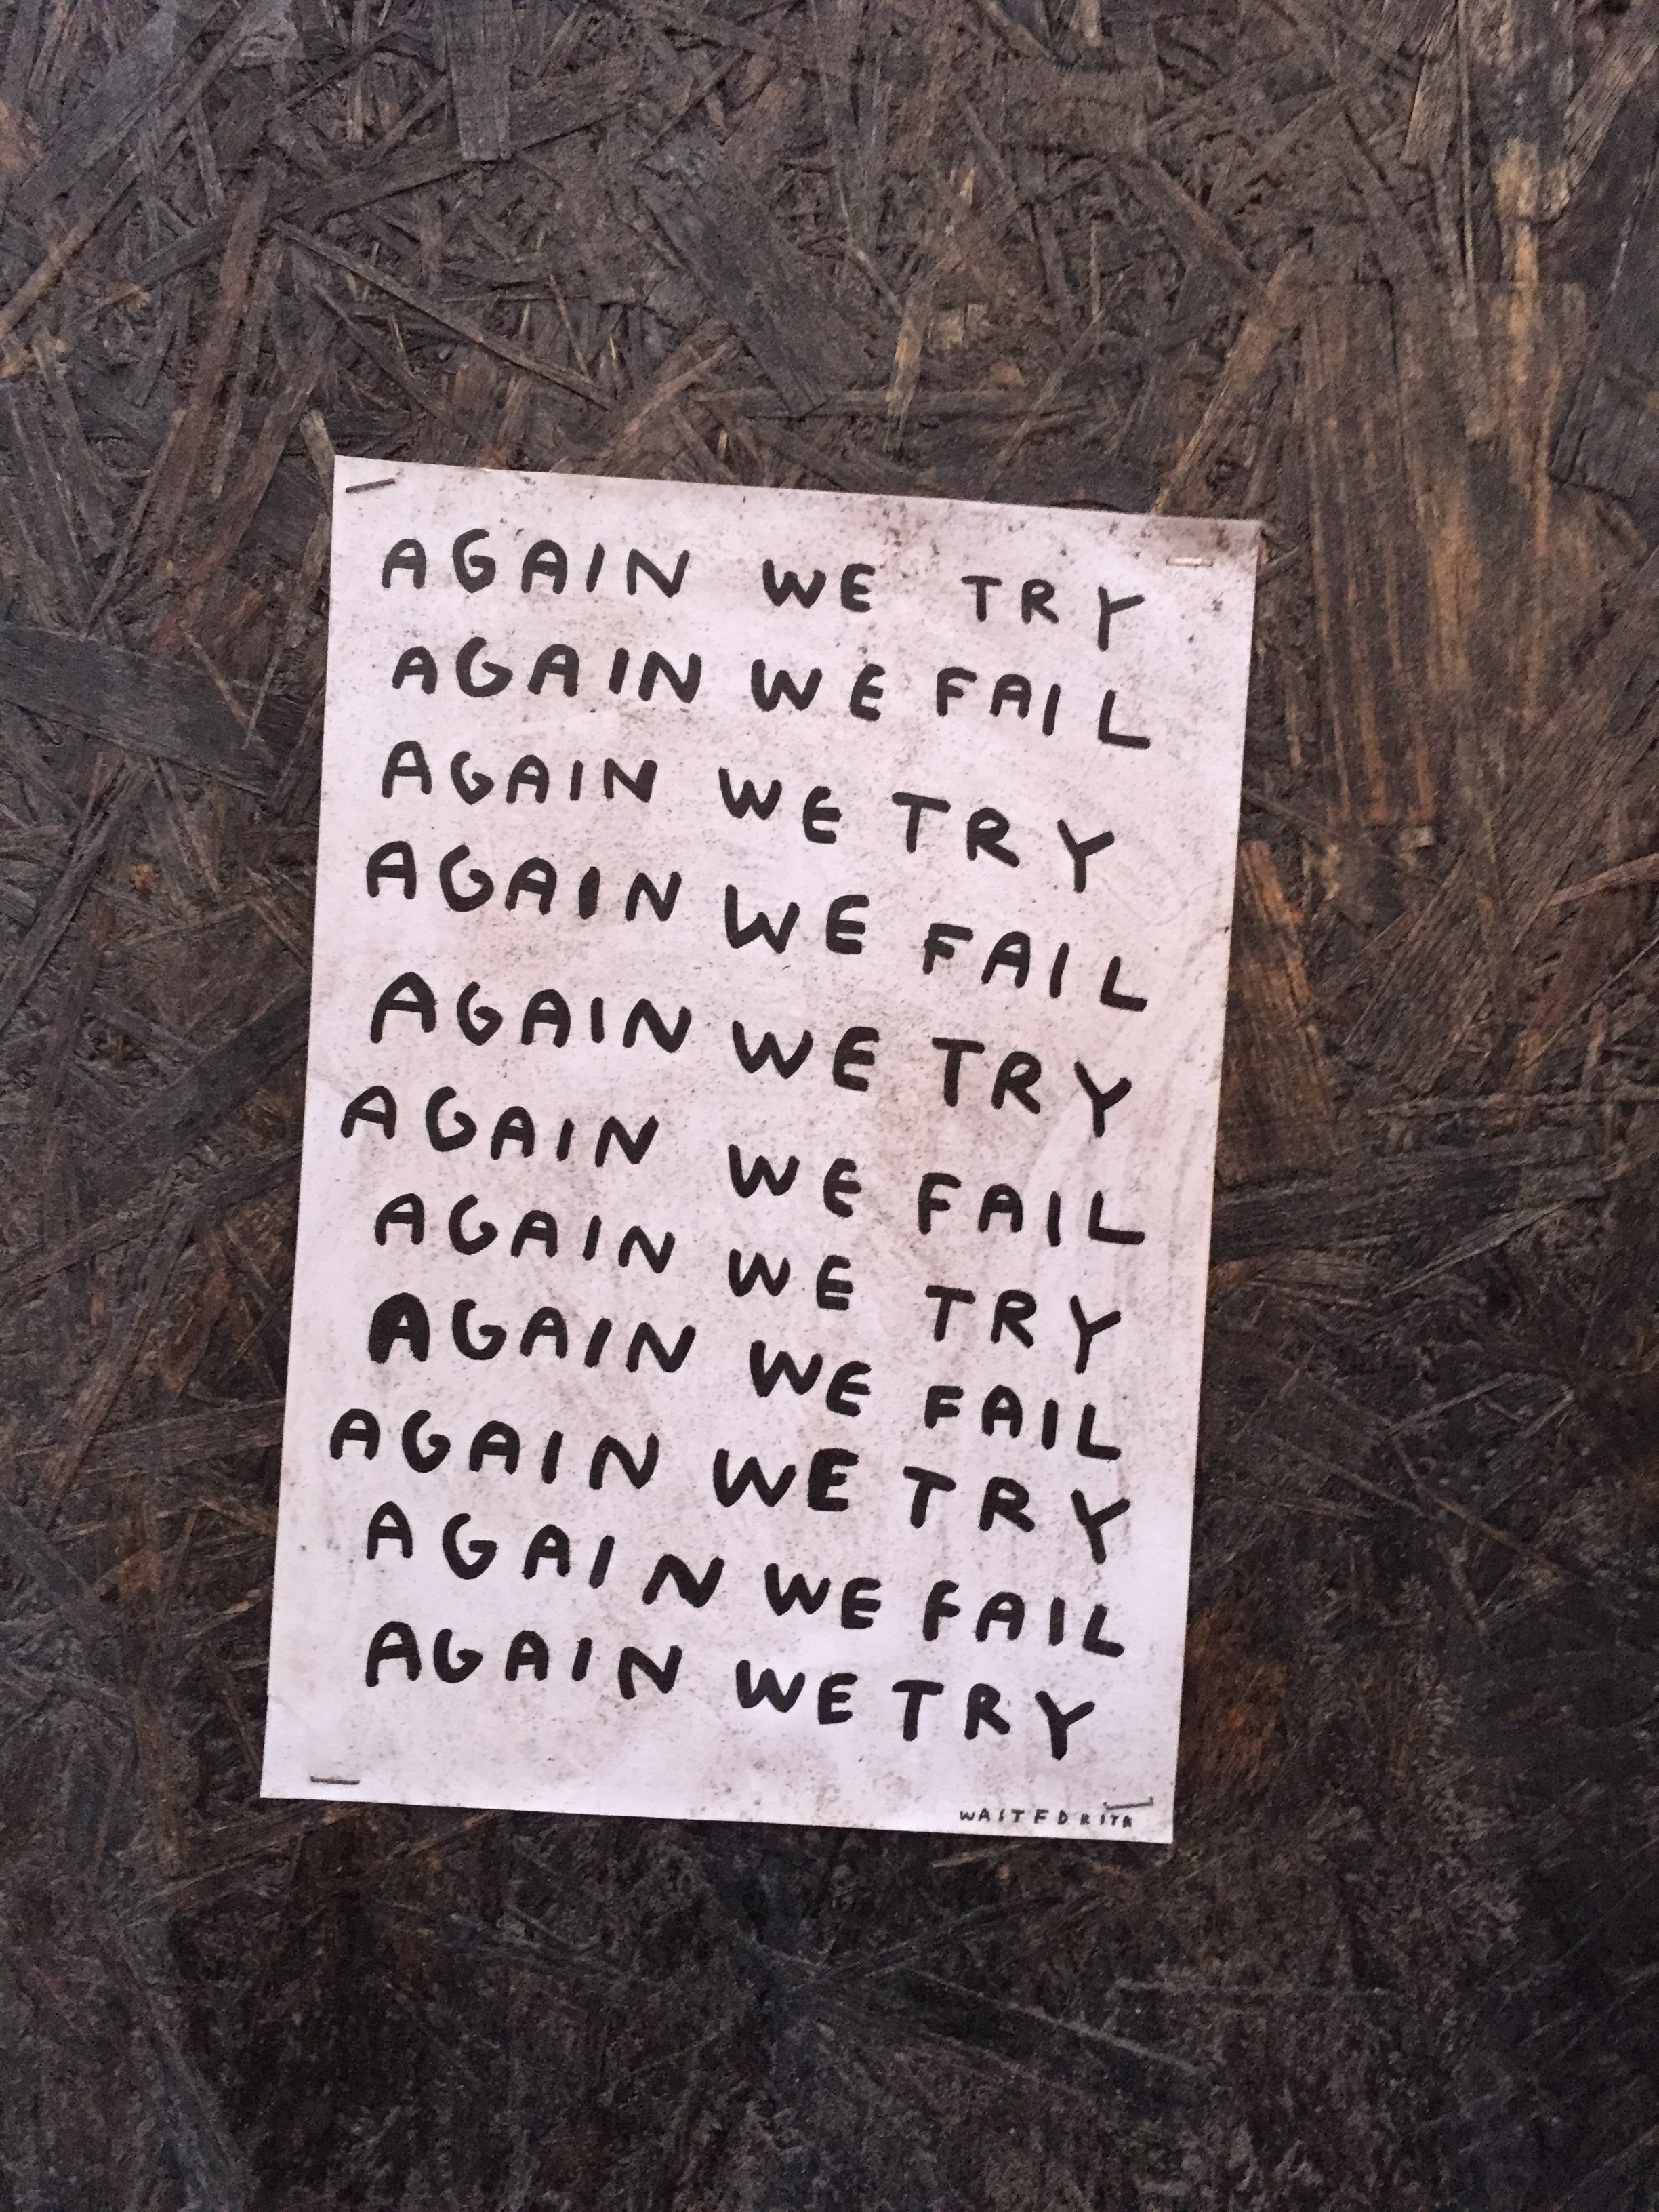 AGAIN WE TRY
AGAIN WE FAIL
AGAIN WE TRY
AGAIN WE FAIL
AGAIN WE TRY
AGAIN WE FAIL
AGAIN WE TRY
AGAIN WE FAIL
AGAIN WE TRY
AGAIN WE FAIL
AGAIN WE TRY
WAITFORITA